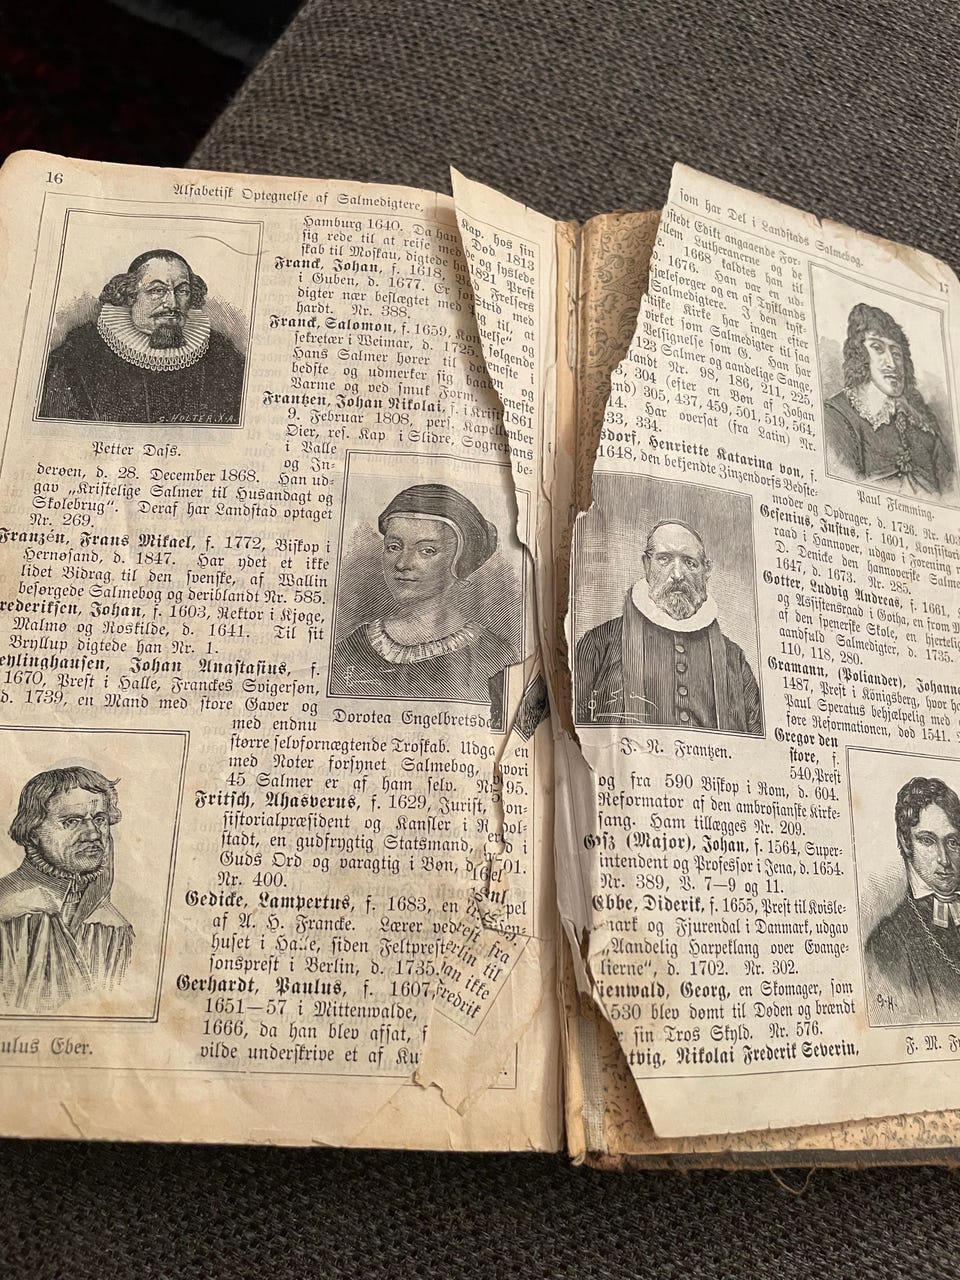 16
Alfabetisk Optegnelse af Salmedigtere,
Hamburg 1640. Da han
sig rede til at reise med
skab til Moskau, digtede
Franck, Johan, f. 1618,
i Guben, d. 1677. Er
digter nær beslægtet med
hardt. Nr. 388.
Franck, Salomon, f. 1659,
sekretær i Weimar, d. 1725.
Hans Salmer hører til
bedste og udmerker sig
Varme og ved smuk Form.
Frantzen, Johan Nikolai, f. i
9. Februar 1808, pers. Kapellan
Oier, res. Kap i Slidre,
i Valle
og In-
S. HOLTER. X. A.
Petter Dass.
derøen, d. 28. December 1868. Han ud-
gav „Kristelige Salmer til Husandagt og
Skolebrug“. Deraf har Landstad optaget
Nr. 269.
Franzén, Frans Mikael, f. 1772, Biskop i
Hernøsand, d. 1847. Har ydet et ikke
lidet Bidrag til den svenske, af Wallin
besørgede Salmebog og deriblandt Nr. 585.
rederiksen, Johan, f. 1603, Rektor i Kjøge,
Malmø og Roskilde, d. 1641. Til sit
Bryllup digtede han Nr. 1.
eylinghausen, Johan Anastasius, f.
1670, Prest i Halle, Franckes Svigersøn,
d. 1739, en Mand med store Gaver og
med endnu
Dorotea Engelbretsda
større selvfornægtende Troskab. Udga
med Noter forsynet Salmebog,
45 Salmer er af ham selv.
Fritsch, Ahasverus, f. 1629, Jurist,
sistorialpræsident og Kansler i
stadt, en gudfrygtig Statsmand,
Guds Ord og varagtig i Bøn,
Nr. 400.
Gedicke, Lampertus, f. 1683, en
af A. H. Francke. Lærer ved
huset i Halle, siden Feltprest
sonsprest i Berlin, d. 1735.
Gerhardt, Paulus, f. 1607,
1651—57 i Mittenwalde,
1666, da han blev afsat, f
vilde underskrive et af Ku
ulus Eber.
Kap. hos sin
Død 1813
og syslede
1821 Prest
Frelsers
Strid med
til, at
og
følgende
eneste i
eneste
1861
be-
fra
til
ikke
Fredrik
17
som har Del i Landstads Salmebog.
stedt Edikt angaaende For-
llem Lutheranerne og de
e. 1668 kaldtes han til
d. 1676. Han var en ud-
jælesørger og en af Tysklands
Salmedigtere. I den tysk-
tiske Kirke har ingen efter
virket som Salmedigter til saa
Velsignelse som G. Han har
123 Salmer og aandelige Sange,
landt Nr. 98, 186, 211, 225,
3, 304 (efter en Bøn af Johan
nd) 305, 437, 459, 501, 519, 564,
4. Har oversat (fra Latin) Nr.
33, 334.
sdorf, Henriette Katarina von, f.
1648, den bekjendte Zinzendorfs Bedste-
moder og Opdrager, d. 1726. Nr.
Paul Flemming.
Gesenius, Justus, f. 1601, Konsistori
raad i Hannover, udgav i Forening
D. Denicke den hannoverske Salme
1647, d. 1673. Nr. 285.
Gotter, Ludvig Andreas, f. 1661,
og Assistensraad i Gotha, en from
af den spenerske Skole, en hjertelig
aandfuld Salmedigter, d. 1735.
110, 118, 280.
Gramann, (Poliander), Johanne
1487, Prest i Königsberg, hvor
Paul Speratus behjælpelig med
føre Reformationen, død 1541.
Gregor den
store, f.
540, Prest
J. N. Frantzen.
og fra 590 Biskop i Rom, d. 604.
Reformator af den ambrosianske Kirke-
sang. Ham tillægges Nr. 209.
(Major), Johan, f. 1564, Super-
intendent og Profesor i Jena, d. 1654.
Nr. 389, V. 7—9 og 11.
Ebbe, Diderik, f. 1655, Prest til Kvisle-
mark og Fjurendal i Danmark, udgav
„Aandelig Harpeklang over Evange-
lierne“, d. 1702. Nr. 302.
ienwald, Georg, en Skomager, som
1530 blev dømt til Døden og brændt
r sin Tros Skyld. Nr. 576.
tvig, Nikolai Frederik Severin,
F. M. F